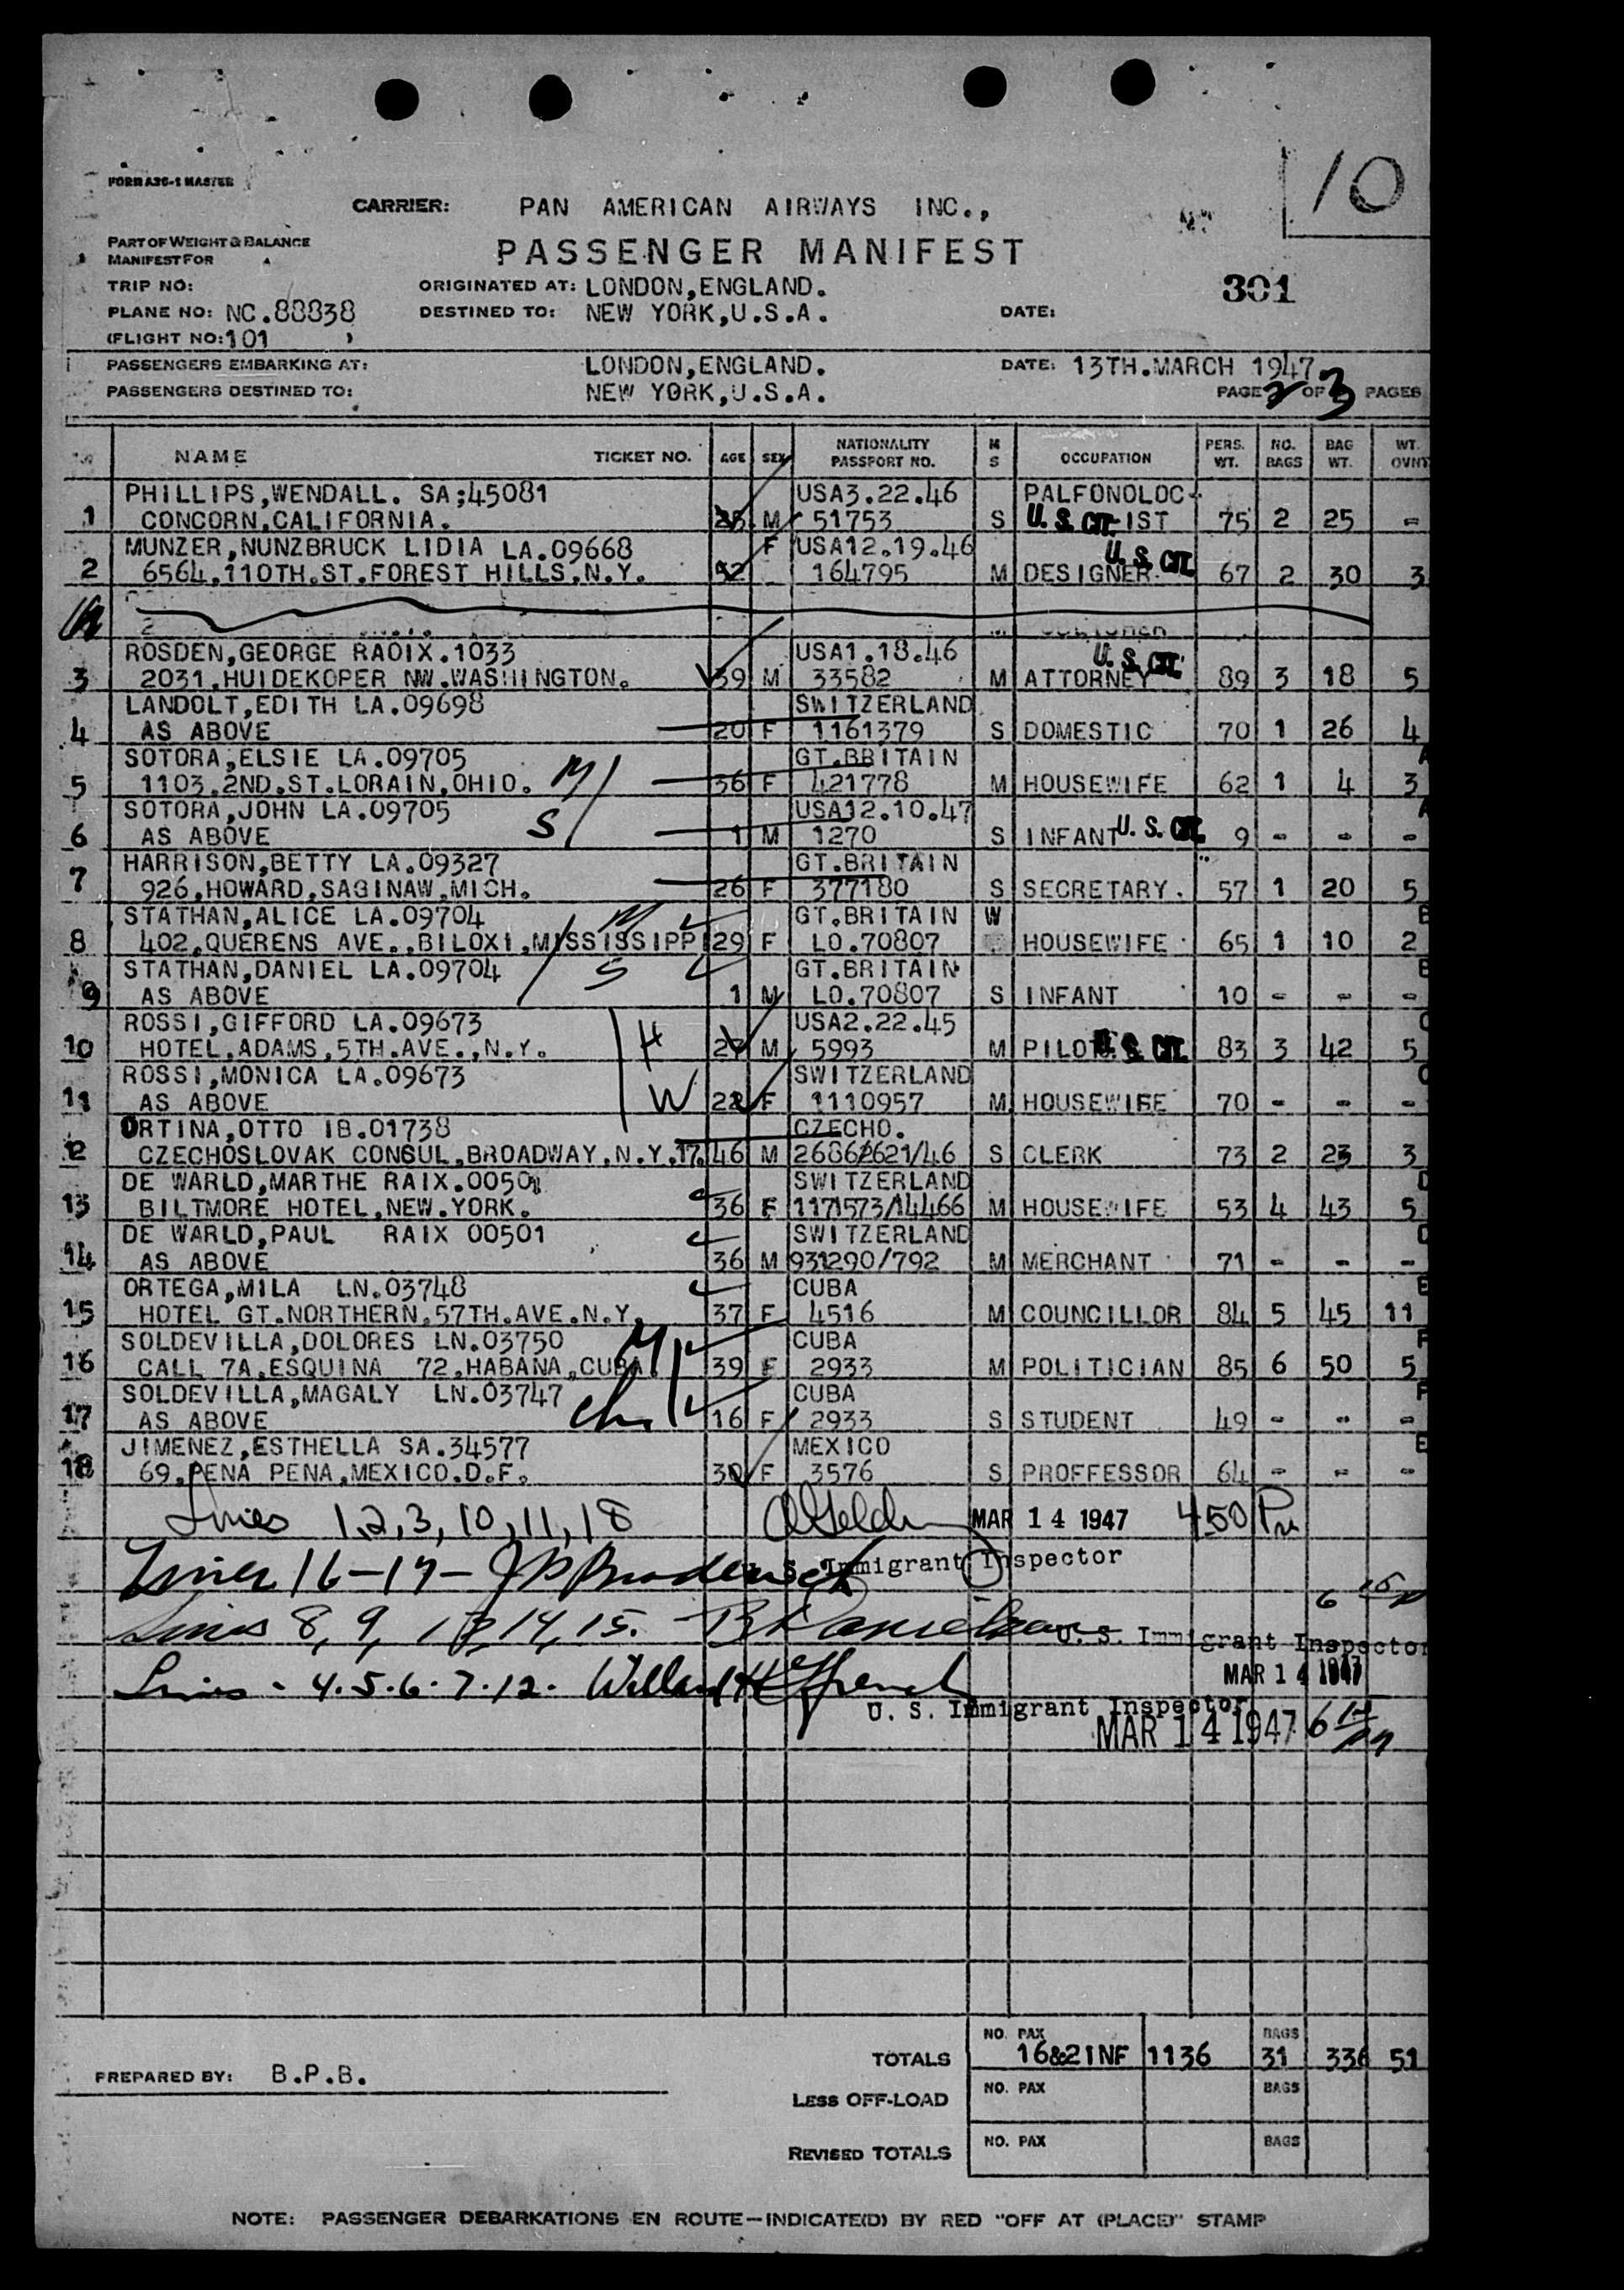 10
FORM A36-1 MASTER
CARRIER: PAN AMERICAN AIRWAYS INC.,
PART OF WEIGHT & BALANCE
MANIFEST FOR
PASSENGER MANIFEST
301
TRIP NO: ORIGINATED AT: LONDON,ENGLAND.
PLANE NO: NC.88838 DESTINED TO: NEW YORK,U.S.A. DATE:
(FLIGHT NO:101 )
PASSENGERS EMBARKING AT: LONDON,ENGLAND. DATE: 13TH.MARCH 1947.
PASSENGERS DESTINED TO: NEW YORK,U.S.A. PAGE 2 OF 3 PAGES
NAME TICKET NO. AGE SEX NATIONALITY PASSPORT NO. M S OCCUPATION PERS. WT. NO. BAGS BAG WT. WT. OVHT
PHILLIPS,WENDALL. SA;45081 USA3.22.46 PALFONOLOC-
1 CONCORN,CALIFORNIA. 25 M 51753 S U. S. CIT. IST 75 2 25 -
MUNZER,NUNZBRUCK LIDIA LA.09668 F USA12.19.46 U. S. CIT.
2 6564,110TH.ST.FOREST HILLS,N.Y. 42 164795 M DESIGNER. 67 2 30 3
ROSDEN,GEORGE RAOIX.1033 USA1.18.46 U. S. CIT.
3 2031,HUIDEKOPER NW.WASHINGTON. 39 M 33582 M ATTORNEY 89 3 18 5
LANDOLT,EDITH LA.09698 SWITZERLAND
4 AS ABOVE 20 F 1161379 S DOMESTIC 70 1 26 4
SOTORA,ELSIE LA.09705 GT.BRITAIN A
5 1103.2ND.ST.LORAIN,OHIO. M 36 F 421778 M HOUSEWIFE 62 1 4 3
SOTORA,JOHN LA.09705 USA12.10.47 A
6 AS ABOVE S 1 M 1270 S INFANT U. S. CIT. 9 - - -
HARRISON,BETTY LA.09327 GT.BRITAIN
7 926,HOWARD,SAGINAW,MICH. 26 F 377180 S SECRETARY. 57 1 20 5
STATHAN,ALICE LA.09704 M GT.BRITAIN W B
8 402,QUERENS AVE.,BILOXI,MISSISSIPPI 29 F LO.70807 HOUSEWIFE 65 1 10 2
STATHAN,DANIEL LA.09704 S GT.BRITAIN B
9 AS ABOVE 1 M LO.70807 S INFANT 10 - - -
ROSSI,GIFFORD LA.09673 USA2.22.45 C
10 HOTEL,ADAMS,5TH.AVE.,N.Y. H 27 M 5993 M PILOT U. S. CIT. 83 3 42 5
ROSSI,MONICA LA.09673 SWITZERLAND C
11 AS ABOVE W 22 F 1110957 M HOUSEWIFE 70 - - -
ORTINA,OTTO IB.01738 CZECHO.
12 CZECHOSLOVAK CONSUL,BROADWAY,N.Y.17. 46 M 2686/2621/46 S CLERK 73 2 23 3
DE WARLD,MARTHE RAIX.00501 SWITZERLAND D
13 BILTMORE HOTEL,NEW.YORK. 36 F 1171573/14466 M HOUSEWIFE 53 4 43 5
DE WARLD,PAUL RAIX 00501 SWITZERLAND D
14 AS ABOVE 36 M 931290/792 M MERCHANT 71 - - -
ORTEGA,MILA LN.03748 CUBA E
15 HOTEL GT.NORTHERN,57TH.AVE.N.Y. 37 F 4516 M COUNCILLOR 84 5 45 11
SOLDEVILLA,DOLORES LN.03750 M CUBA F
16 CALL 7A,ESQUINA 72,HABANA,CUBA. 39 F 2933 M POLITICIAN 85 6 50 5
SOLDEVILLA,MAGALY LN.03747 CUBA F
17 AS ABOVE Ch. 16 F 2933 S STUDENT 49 - - -
JIMENEZ,ESTHELLA SA.34577 MEXICO E
18 69,PENA PENA,MEXICO.D.F. 30 F 3576 S PROFFESSOR 64 - - -
Lines 1,2,3,10,11,18 MAR 14 1947 450 Pm
Lines 16-17- S. Immigrant Inspector
Lines 8, 9, 13, 14, 15.
U. S. Immigrant Inspector
MAR 14 1947
Lines - 4.5.6.7.12. Willard H French
U. S. Immigrant Inspector
MAR 14 1947
TOTALS NO. PAX 16&2INF 1136 BAGS 31 336 51
PREPARED BY: B.P.B.
LESS OFF-LOAD NO. PAX BAGS
REVISED TOTALS NO. PAX BAGS
NOTE: PASSENGER DEBARKATIONS EN ROUTE—INDICATE(D) BY RED "OFF AT (PLACE)" STAMP